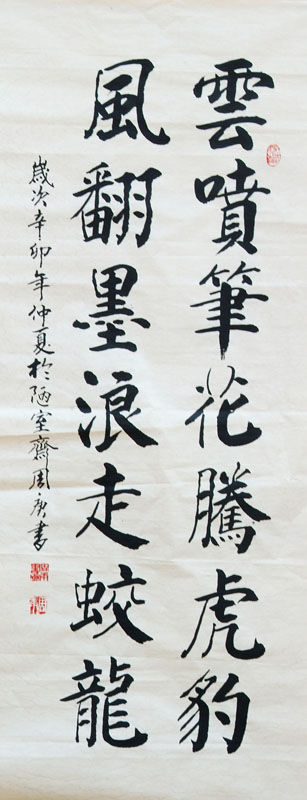 雲噴筆花騰虎豹
風翻墨浪走蛟龍
歲次辛卯年仲夏於陋室齋周庚書